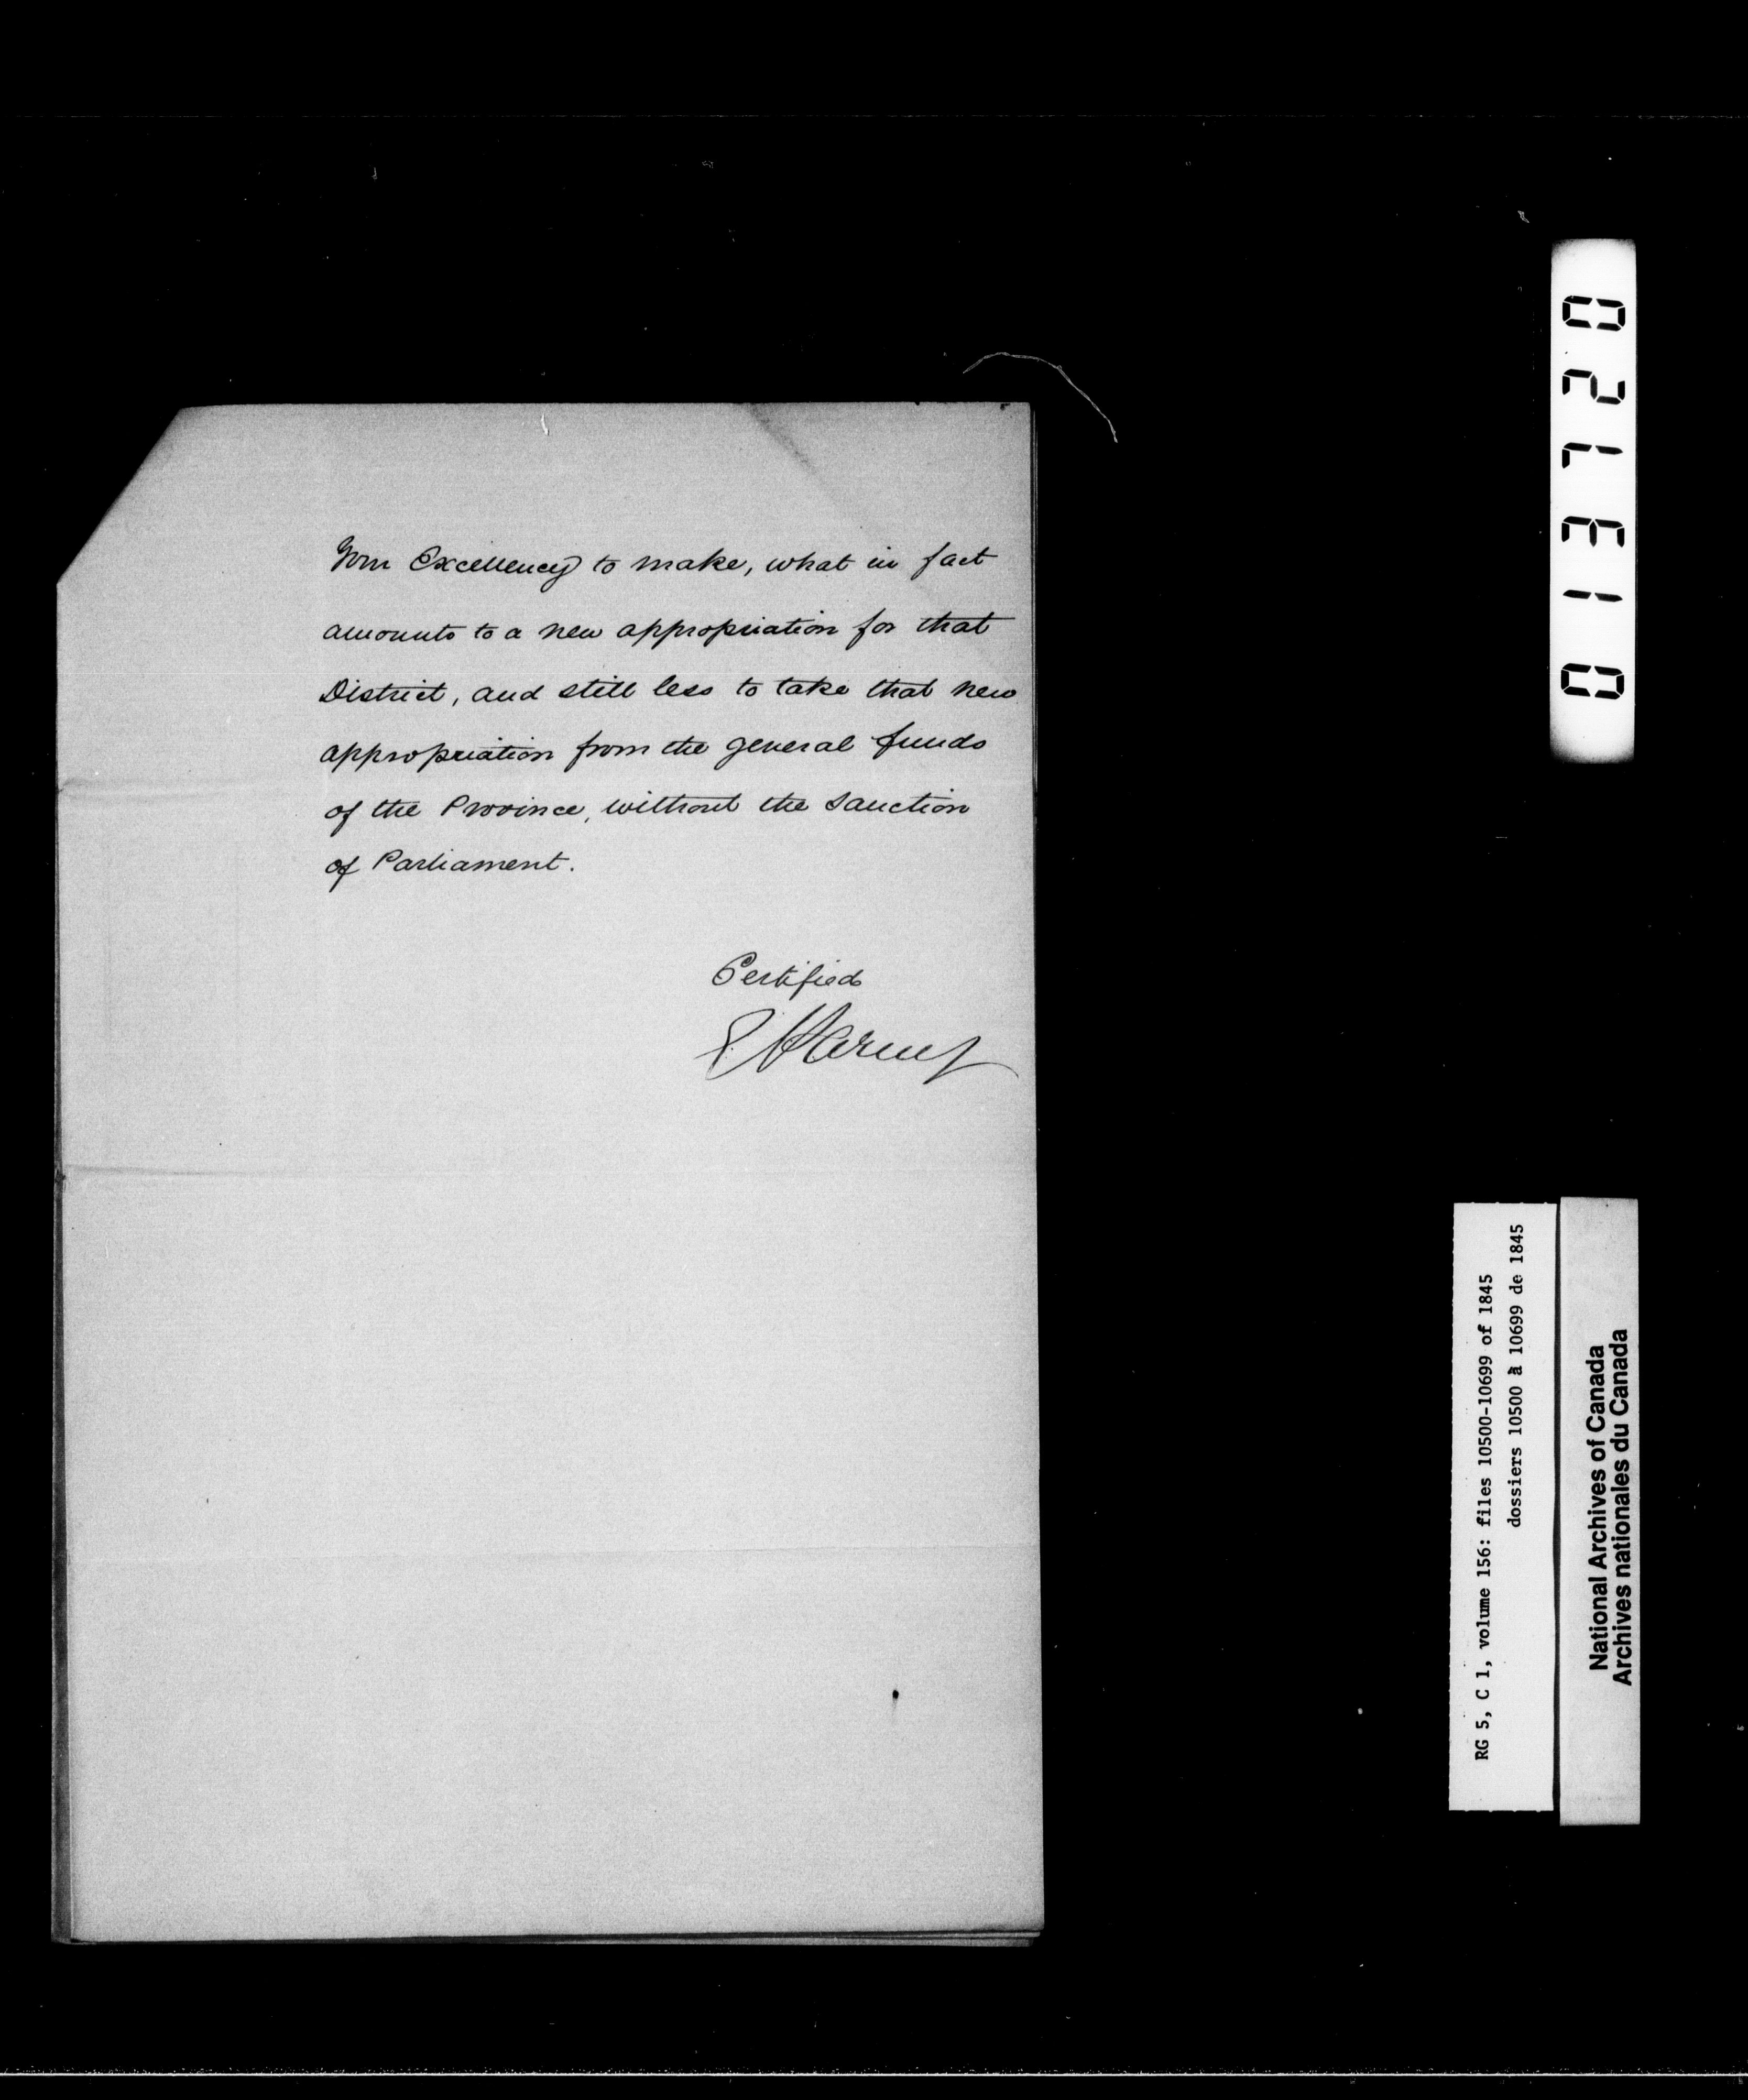 Your Excellency to make, what in fact
amounts to a new appropriation for that
District, and still less to take that new
appropriation from the general funds
of the Province, without the sanction
of Parliament.
Certified
013720
RG 5, C 1, volume 156: files 10500-10699 of 1845
dossiers 10500 à 10699 de 1845
National Archives of Canada
Archives nationales du Canada